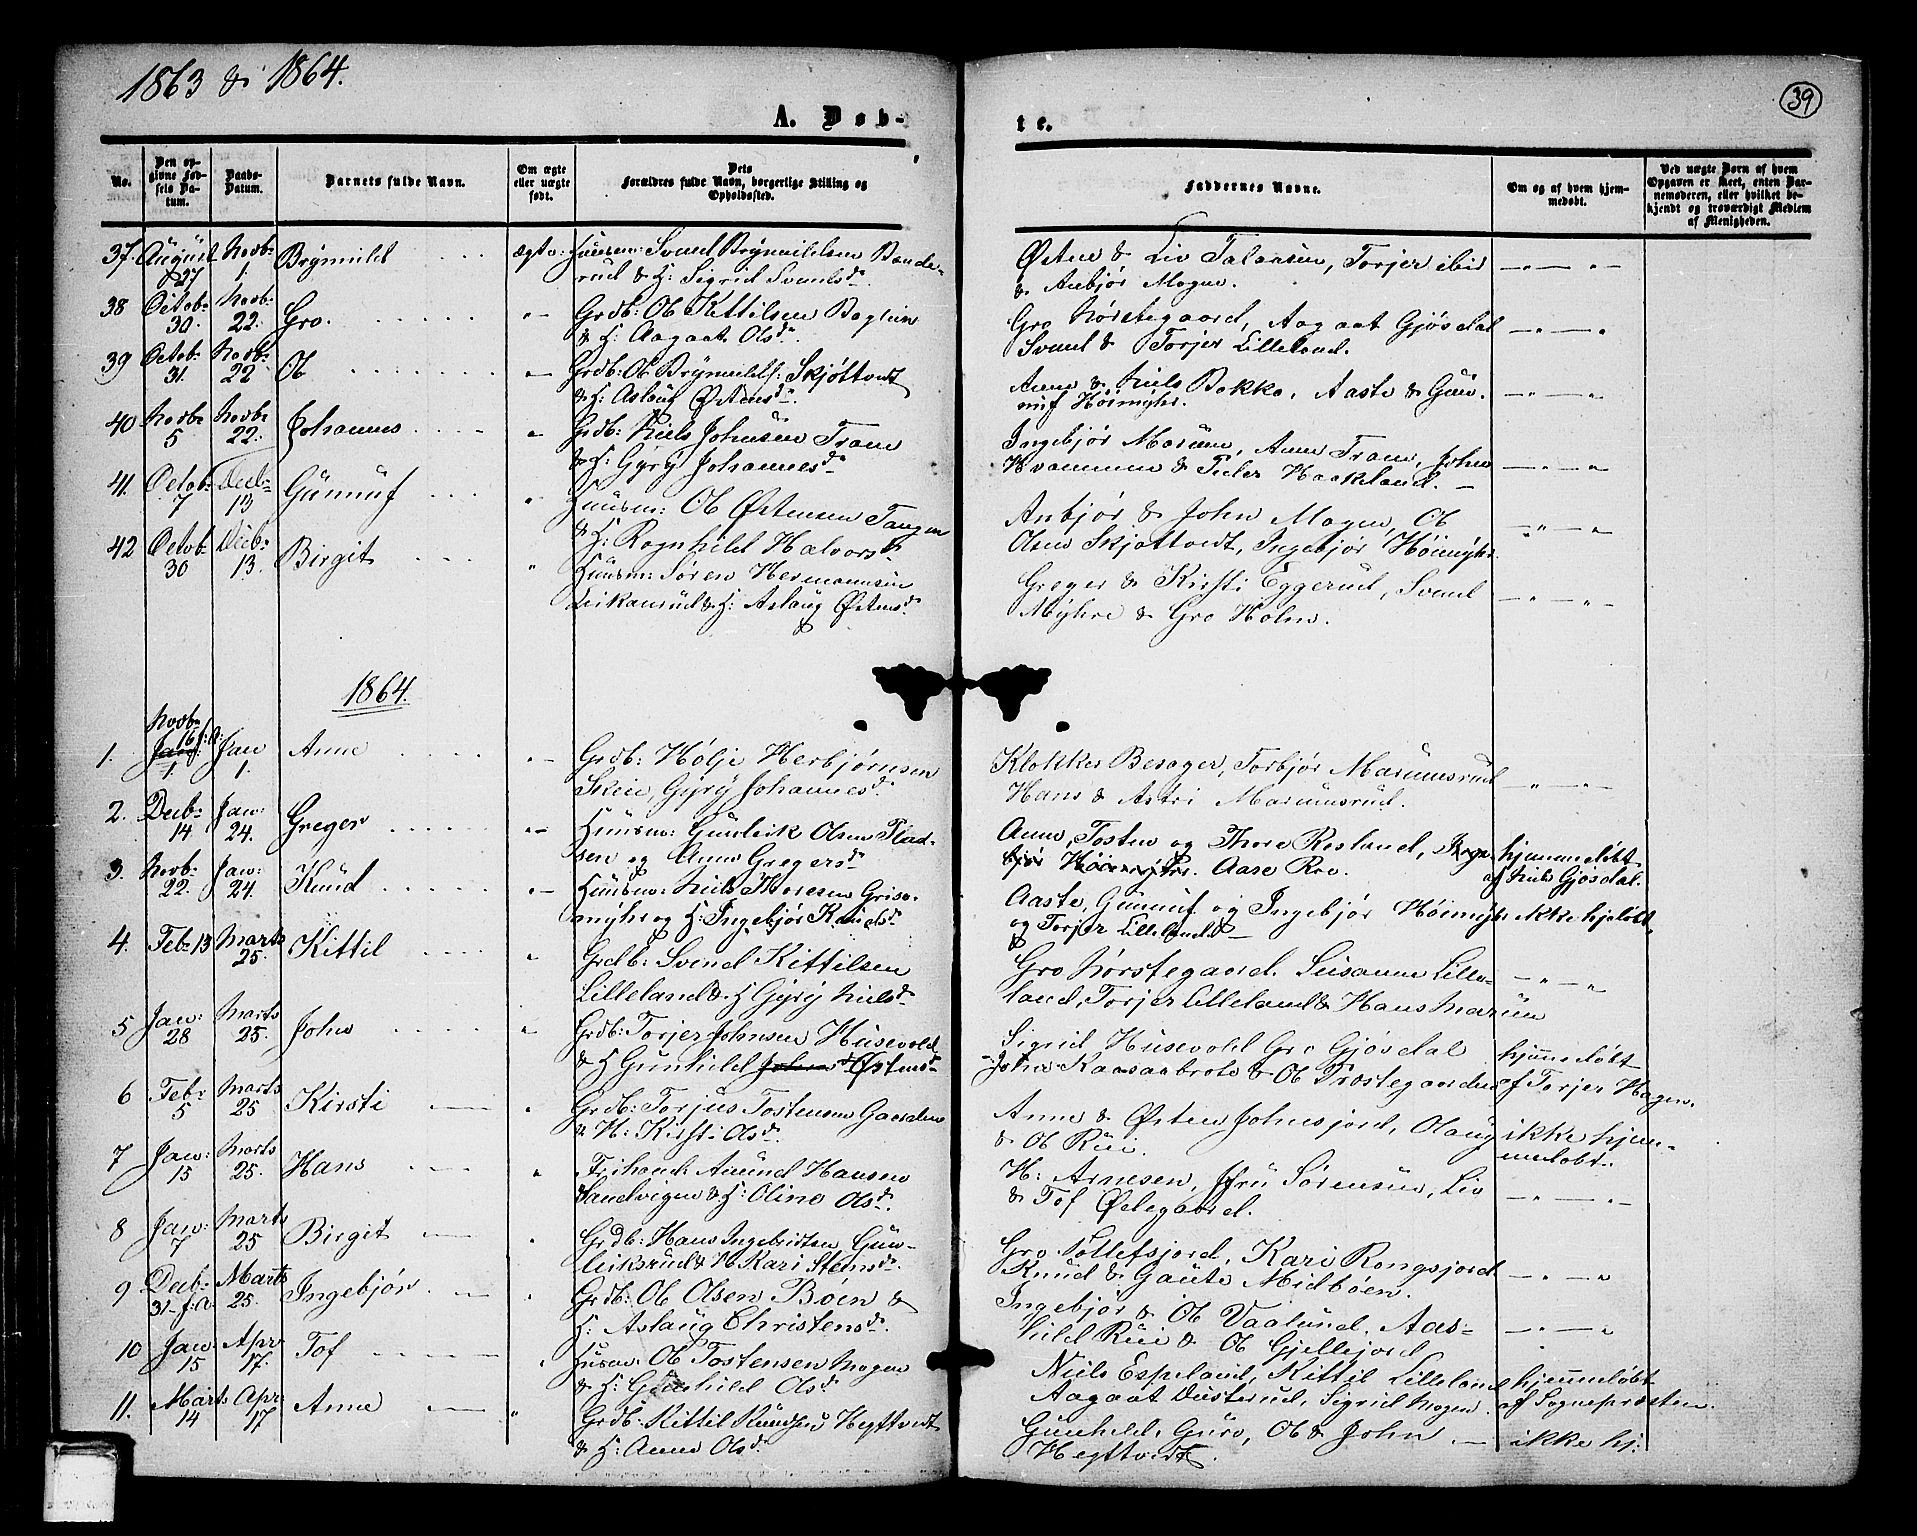 1863 & 1864.
39
A. Døb-
te.
No.
Den op-
givne Fød-
sels Da-
tum.
Daabs-
Datum.
Barnets fulde Navn.
Om ægte
eller uægte
født.
Dets
Forældres fulde Navn, borgerlige Stilling og
Opholdssted.
Faddernes Navne.
Om og af hvem hjem-
medøbt.
Ved uægte Børn af hvem
Opgaven er skeet, enten Bar-
nemoderen, eller hvilket be-
kjendt og troværdigt Medlem
af Menigheden.
37. August 27 Novbr 1. Brynnild ægte: Huusm: Svend Brynnildsen Bonde-
rud & H: Sigrid Svends d.
Østen & Liv Talaasen, Torjer ibid
& Anbjør Mogen.
38 Octobr 30. Novbr 22. Gro. Grdb: Ob Kittilsen Boglun
& H: Aagaat Ols d.
Gro Nørstegaard, Aagaat Gjøsdal
Svend & Torjer Lilleland.
39 Octobr 31. Novbr 22 Ob Grdb: Ob Brynnilds: Skjøttvedt
& H: Aslaug Østens d.
Anne & Niels Bakke, Aaste & Gun-
nuf Høimyhr.
40 Novbr 5 Novbr 22. Johannes Grdb: Niels Johnsen Traan
& H: Gyrý Johannes d.
Ingebjør Marum, Anne Traan, John
Hvammen & Peder Haakeland.
41. Octob: 7 Decbr 13 Gunnuf Huusm: Ob Østensen Tangen
& H: Ragnhild Halvors d.
Anbjør & John Mogen, Ob
Olsen Skjøttvedt, Ingebjør Høimyhr
42 Octob 30 Decbr 13. Birgit Huusm: Søren Hermansen
Leikanrud & H: Aslaug Østens d.
Greger & Kirsti Eggerud, Svend
Myhre & Gro Holm.
1864.
1. Novbr 16 f: A: Jan 1. Jan 1. Anne Grdb: Hølje Herbjørnsen
Skeie, Gyrý Johannes d.
Klokker Besager, Torbjør Marumsrud
Hans & Astri Marumsrud.
2. Decbr 14 Jan: 24. Greger Huusm: Gunleik Olsen Plad-
sen og Anne Gregers d.
Anne, Tosten og Thore Rosland,
Høimyhr. Aase Roe.
hjemmedøbt
af Niels Gjøsdal.
3. Novbr 22. Jan: 24. Knud Huusm: Niels Thoresen Griso-
myhr og H: Ingebjør Knuds d.
Aaste, Gunnuf og Ingebjør Høimyhr
og Torjer Lilleland
ikke hjedøbt
4. Febr 13 Marts 25. Kittil Grdb: Svend Kittilsen
Lilleland & H Gyrý Niels d.
Gro Nørstegaard. Susanne Lille-
land, Torjer Lilleland & Hans Marum
5 Jan: 28 Marts 25. John Grdb: Torjer Johnsen Husevold
& H Gunhild Johns d Østens d.
Sigrid Husevold Gro Gjøsdal
John Kaasaabrote & Ob Prostegaarden
hjemmedøbt
af Torjer Hagen.
6 Febr 5 Marts 25 Kirsti Grdb: Torjus Tostensen Gaarden
& H: Kirsti Ols d.
Anne & Østen Johnsjord, Olaug
& Ob Rui.
ikke hjem-
medøbt.
7 Jan: 15 Marts 25. Hans Frihandl: Amund Hansen
Sandvigen & H: Oline Ols d.
H: Arnesen, Fru Sørensen, Liv
& Tof Ødegaard.
8 Jan: 7 Marts 25 Birgit Grdb: Hans Ingebretsen Gun-
leiksrud & H Kari Steins d.
Gro Tollefsjord, Kari Rongsjord
Knud & Gaute Midbøen.
9 Decbr 31 f: A Marts 25. Ingebjør Grdb: Ob Olsen Bøen &
H: Aslaug Christens d.
Ingebjør & Ob Vaalund, Aas-
hild Rui & Ob Gjellejord
10 Jan: 15 Apr 17. Tof Husm: Ob Tostensen Mogen
& H: Gunhild Ols d.
Niels Espeland, Kittil Lilleland
Aagaat Dusterud, Sigrid Mogen
hjemmedøbt
af Sogneprosten.
11. Marts 14 Apr 17 Anne Grdb. Kittil Knudsen Hegtvedt
& H: Anne Ols d.
Gunhild, Guro, Ob & John
Hegtvedt.
ikke hj: